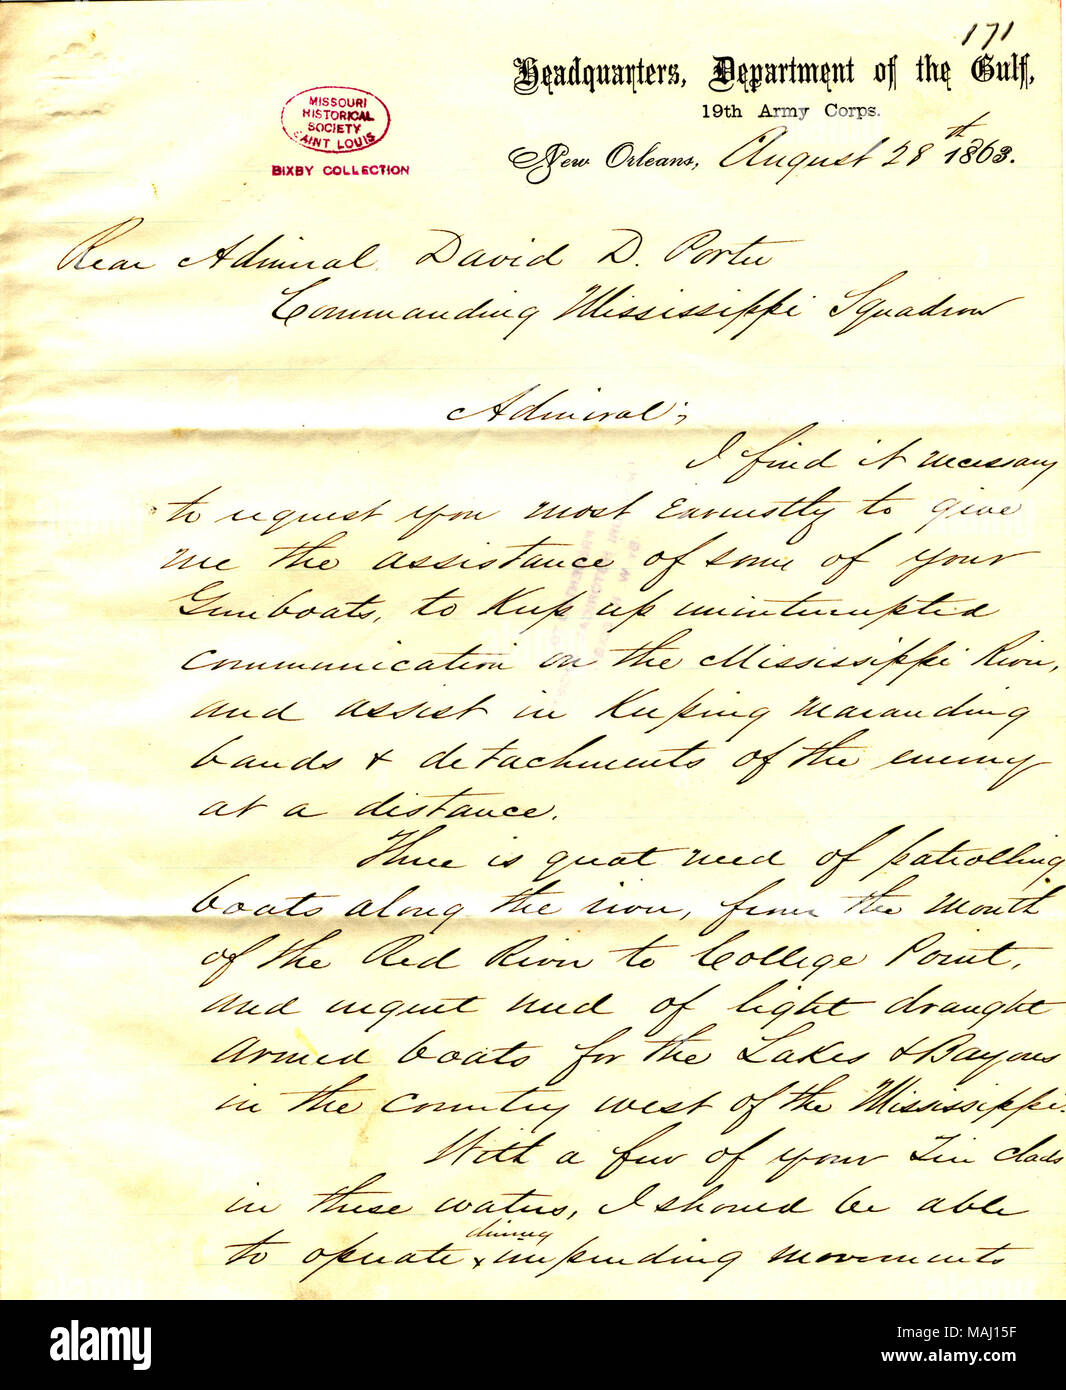 171
Headquarters, Department of the Gulf,
19th Army Corps.
New Orleans, August 28th 1863.
MISSOURI
HISTORICAL
SOCIETY
SAINT LOUIS
BIXBY COLLECTION
Rear Admiral David D. Porter
Commanding Mississippi Squadron
Admiral;
I find it necessary
to request you most earnestly to give
me the assistance of some of your
Gunboats, to keep up uninterrupted
communication on the Mississippi River,
and assist in keeping marauding
bands & detachments of the enemy
at a distance.
There is great need of patrolling
boats along the river, from the mouth
of the Red River to College Point,
and urgent need of light draught
armed boats for the Lakes & Bayous
in the country west of the Mississippi.
With a few of your Tin clads
in these waters, I should be able
during
to operate x impending movements
alamy
Image ID: MAJ15F
www.alamy.com